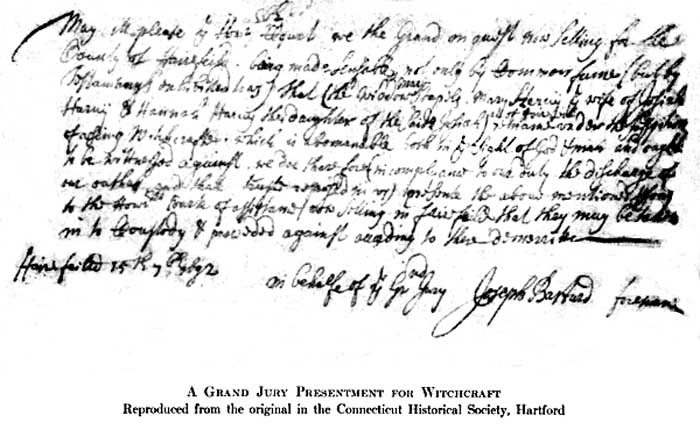 May itt please yͤ Honᵇˡᵉ Court we the Grand on quest now setting for the
County of Fairefeild being made sensable, not only by Common fame (but by
testamonys delivered to us) that the widdow Mary Staple, Mary Harvy yͤ wife of Josiah
Harvy & Hannah Harvy the daughter of the Josiah remaine under the suspition
of useing Witchcraft which is abomanable both in yͤ sight of God & man and ought
to be witnessed against. we doe therefore in complyance to our duty the discharge of
our oathes and that trust reposed in us) presente the above mentioned
to the Honᵇˡᵉ Court of assistants now setting in Fairefeild that they may be taken
in to Custody & proceded against according to there demerits
Fairefeild 15ᵗʰ 7ᵇ 1692
in behalfe of yͤ Grⁿᵈ Jury
Joseph Bastard foreman
A GRAND JURY PRESENTMENT FOR WITCHCRAFT
Reproduced from the original in the Connecticut Historical Society, Hartford